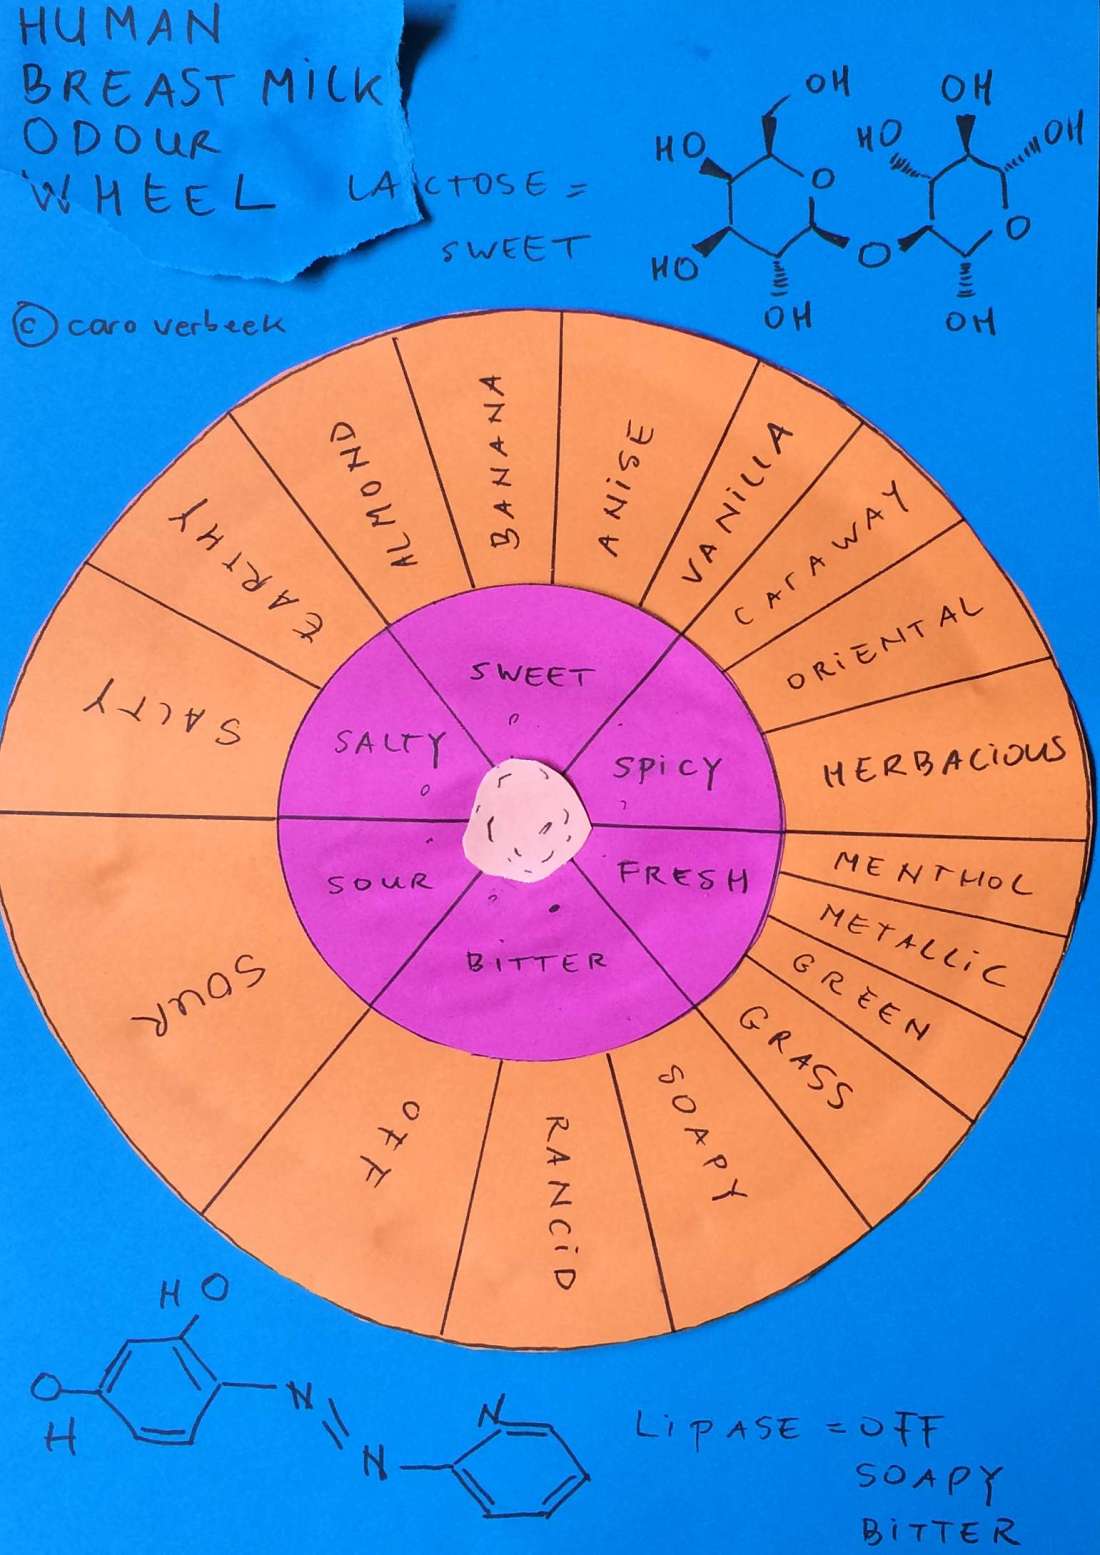 HUMAN
BREAST MILK
ODOUR
WHEEL
LACTOSE =
SWEET
© caro verbeek
OH
HO
O
HO
OH
O
OH
HO
OH
O
OH
ALMOND
BANANA
ANISE
VANILLA
CARAWAY
ORIENTAL
HERBACIOUS
MENTHOL
METALLIC
GREEN
GRASS
SOAPY
RANCID
OFF
SOUR
SALTY
EARTHY
SWEET
SPICY
FRESH
BITTER
SOUR
SALTY
HO
O
H
N
N
N
LIPASE = OFF
SOAPY
BITTER